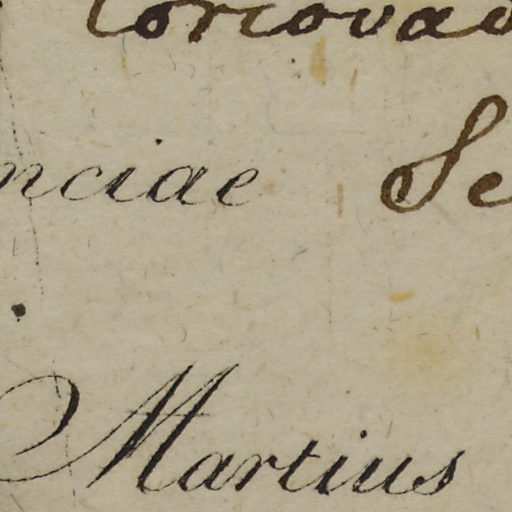 Corcovad
nciae Se
Martius